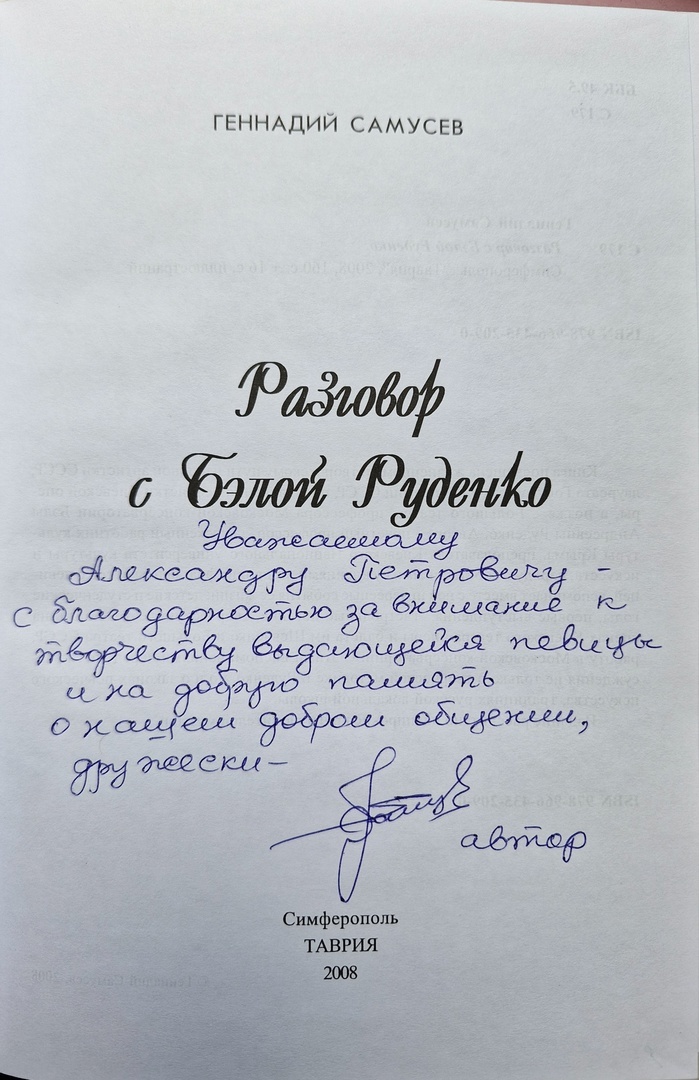 ГЕННАДИЙ САМУСЕВ
Разговор
с Бэлой Руденко
Уважаемому
Александру Петровичу –
с благодарностью за внимание к
творчеству выдающейся певицы
и на добрую память
о нашем добром общении,
дружески –
автор
Симферополь
ТАВРИЯ
2008